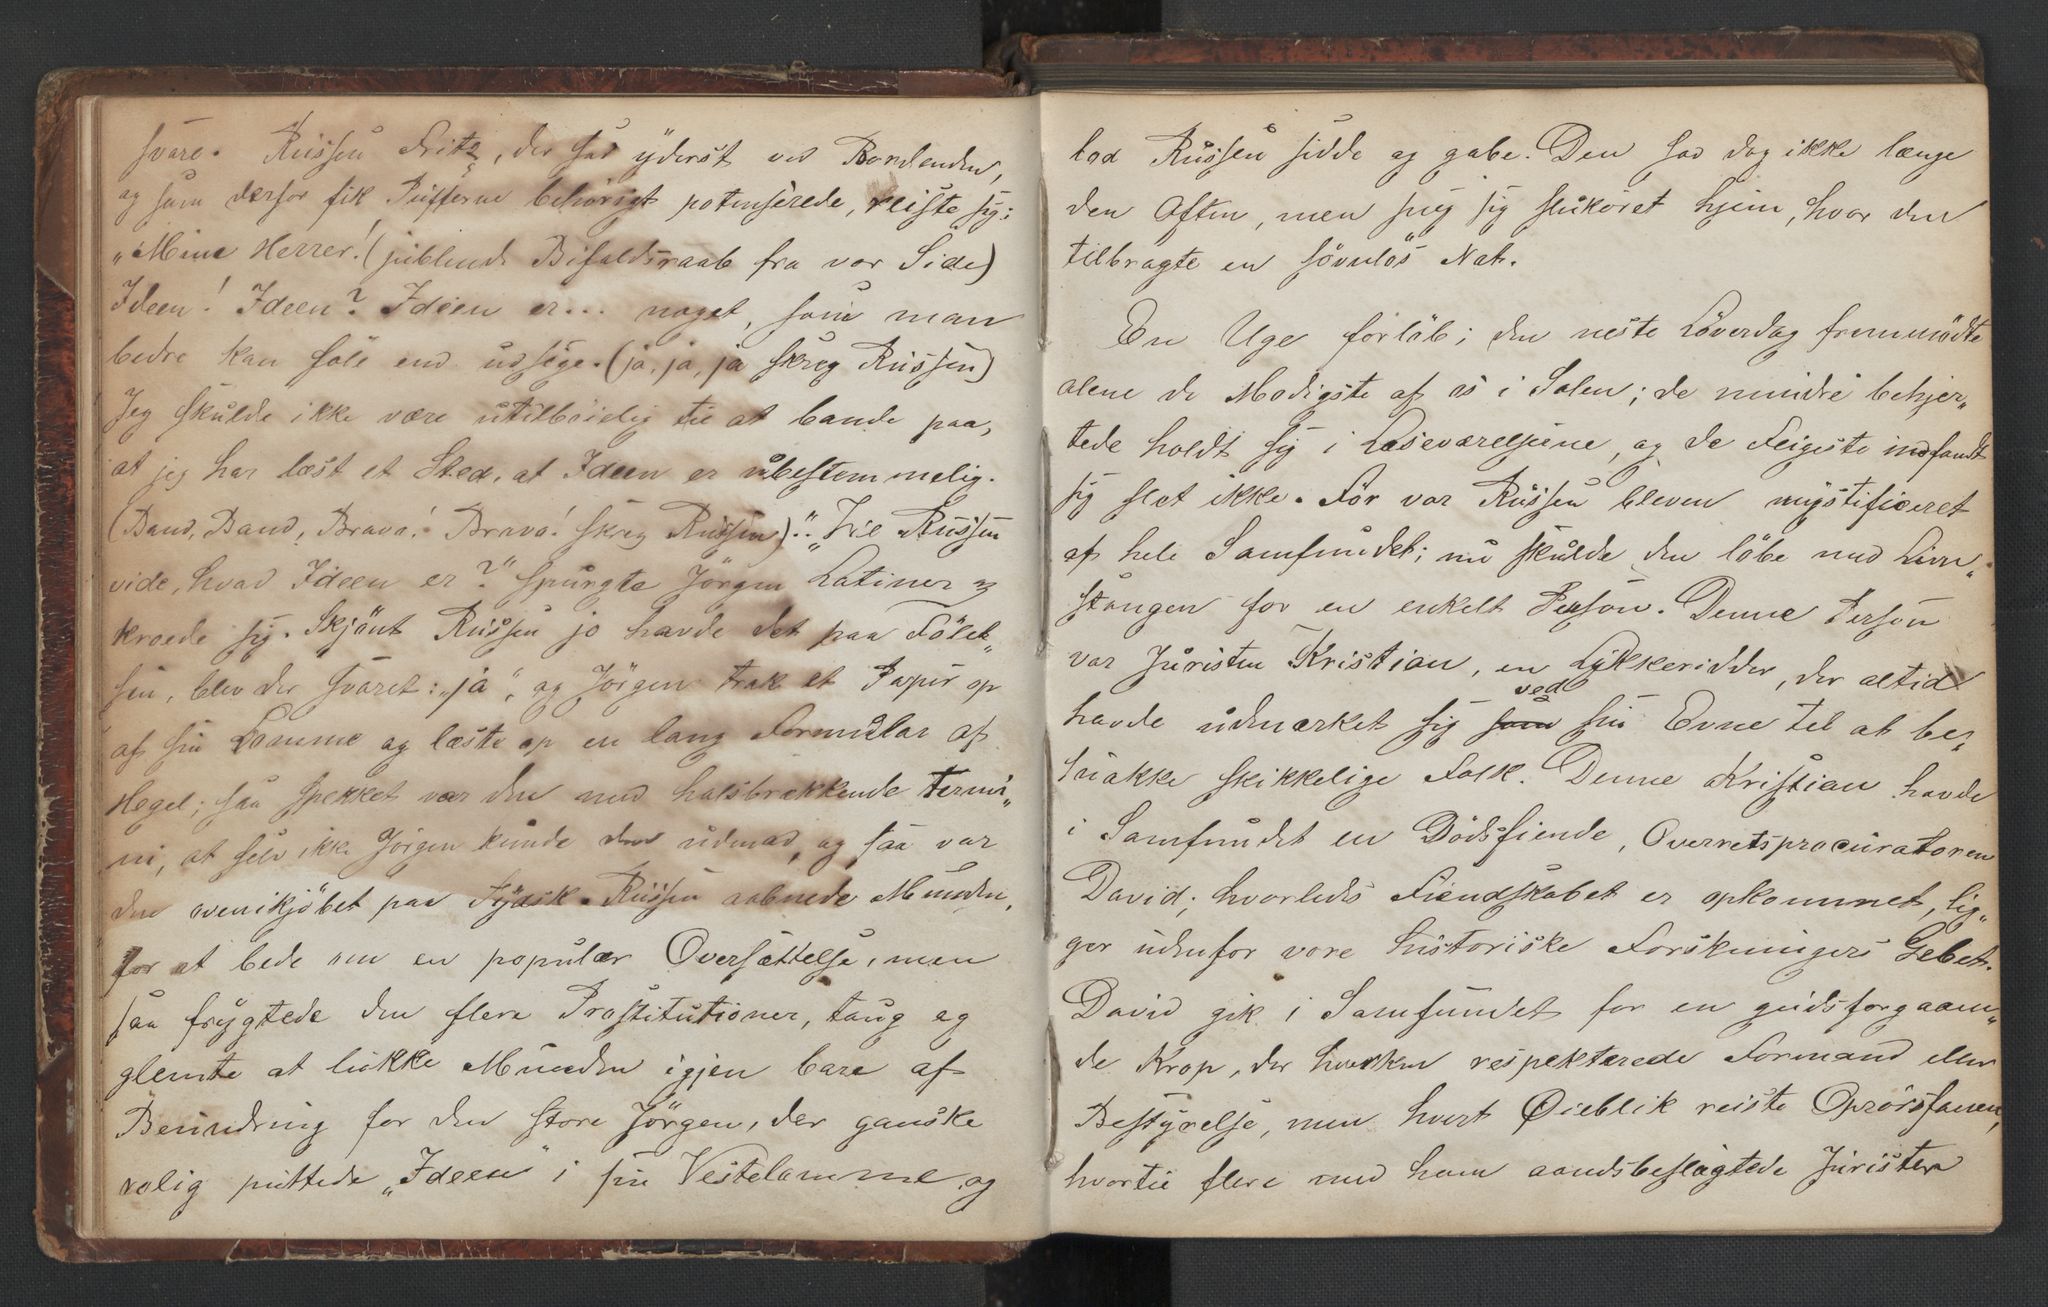 svare. Russen Fritz, der sad yderst ved Bordenden,
og som derfor fik Pufferne behörigt potenserede, reiste sig:
„Mine Herrer! (jublende Bifaldsraab fra vor Side)
Ideen! Ideen? Ideen er... noget, som man
bedre kan föle end udsige. (ja, ja, ja skreg Russen)
Jeg skulde ikke være utilböielig til at bande paa,
at jeg har læst et Sted, at Ideen er ubestemmelig.
(Band, Band, Bravo! Bravo! skreg Russen)." „Vil Russen
vide, hvad Ideen er?" spurgte Jörgen Latiner og
kroede sig. Skjönt Russen jo havde det paa Fölel„
sen, blev der svaret: „ja", og Jörgen trak et Papir op
af sin Lomme og læste op en lang Formular af
Hegel; saa spekket var den med halsbrækkende termi„
ni, at selv ikke Jörgen kunde den udenad, og saa var
den ovenikjöbet paa Tydsk. Russen aabnede Munden,
for at bede om en populær Oversættelse, men
saa frygtede den flere Prostitutioner, taug og
glemte at lukke Munden igjen bare af
Beundring for den store Jörgen, der ganske
rolig puttede „Ideen" i sin Vestelomme og
lod Russen sidde og gabe. Den sad dog ikke længe
den Aften, men sneg sig sluköret hjem, hvor den
tilbragte en sövnlös Nat.
En Uge forlöb; den neste Löverdag fremmödte
alene de Modigste af os i Salen; de mindre behjer„
tede holdt sig i Læseværelserne, og de Feigeste indfandt
sig slet ikke. För var Russen bleven mystificeret
af hele Samfundet; nu skulde den löbe med Lim„
stangen for en enkelt Person. Denne Person
var Juristen Kristian, en Lykkeridder, der altid
havde udmærket sig som ved sin Evne til at be„
snakke skikkelige Folk. Denne Kristian havde
i Samfundet en Dödsfiende, Overretsprocuratoren
David; hvorledes Fiendskabet er opkommet, lig„
ger udenfor vore historiske Forskningers Gebet.
David gik i Samfundet for en gudsforgaaen„
de Krop, der hverken respekterede Formand eller
Bestyrelse, men hvert Öieblik reiste Oprörsfanen,
hvortil flere med ham aandsbeslægtede Jurister